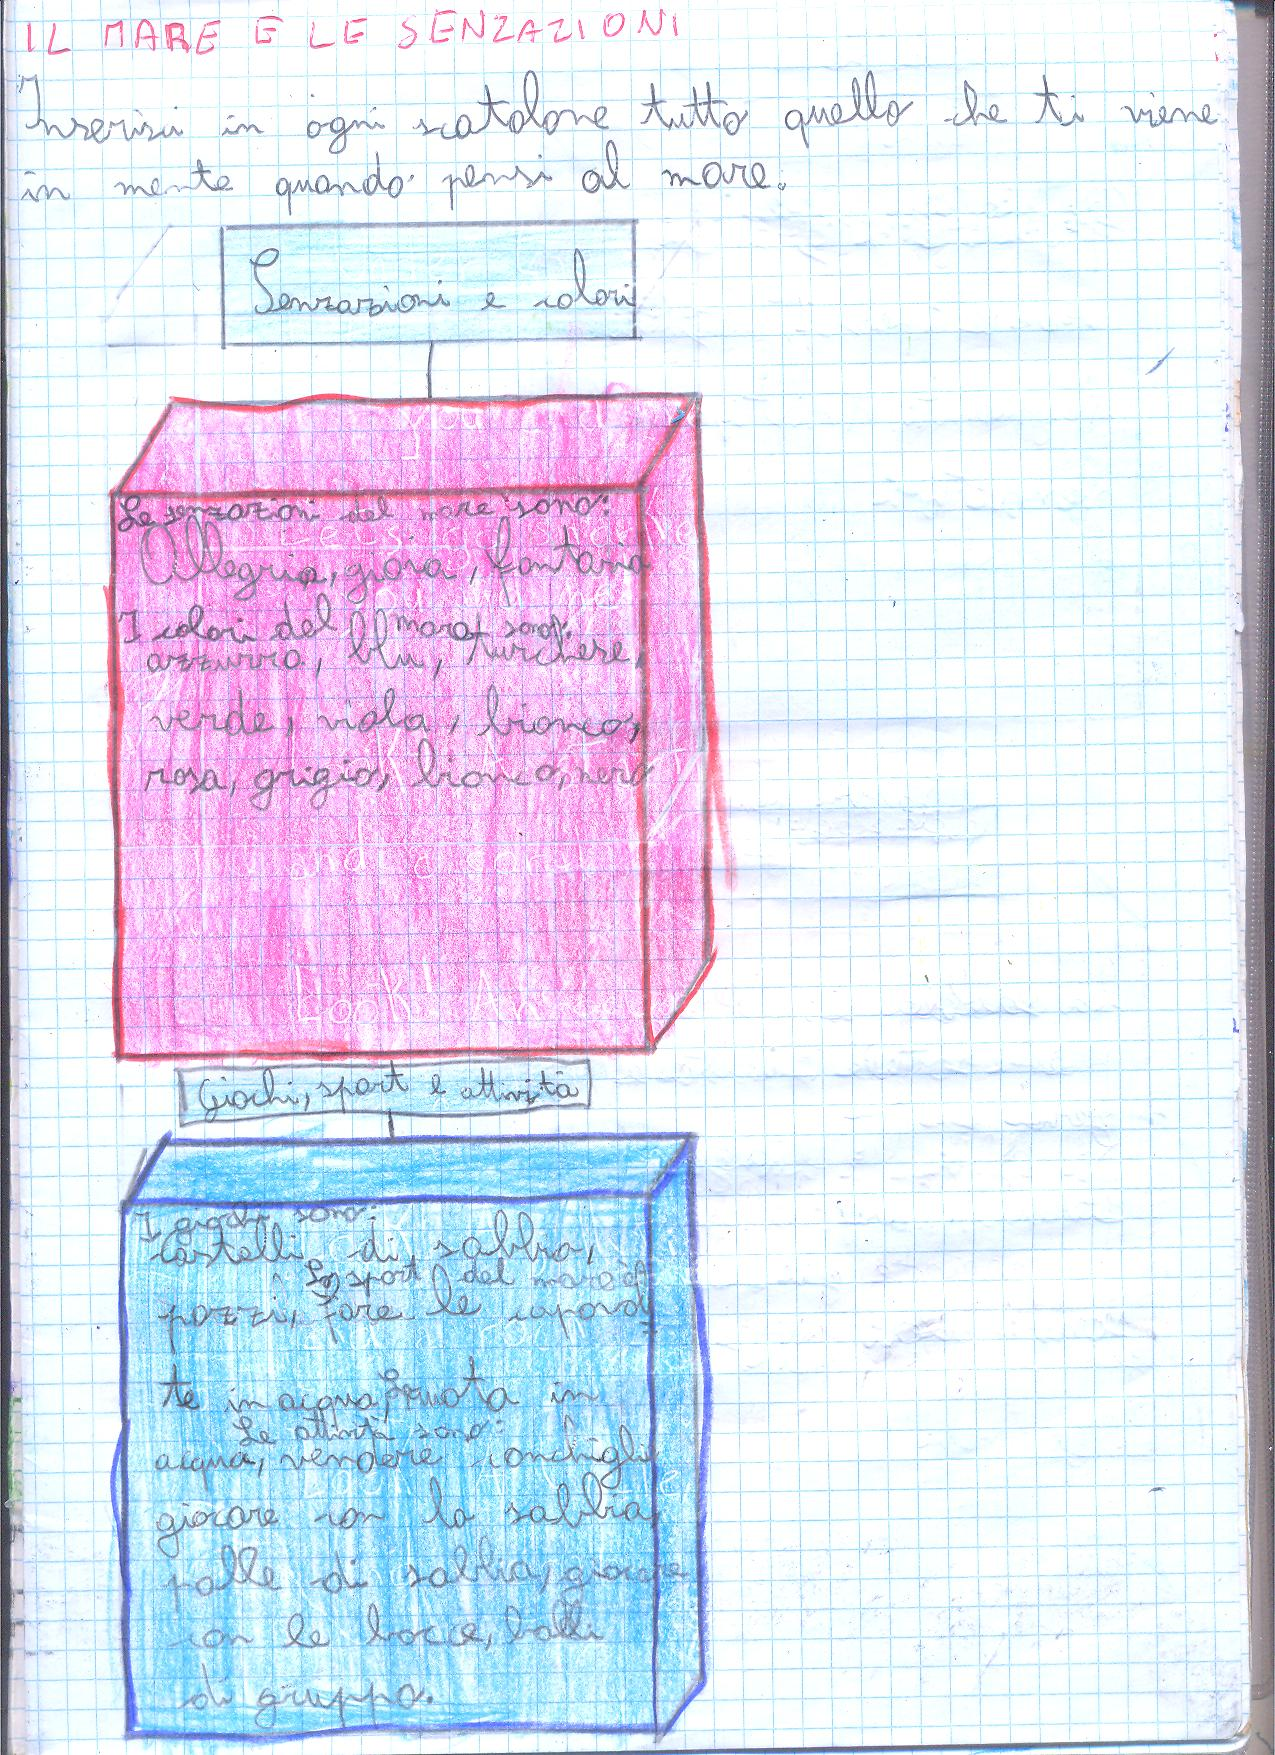 IL MARE E LE SENZAZIONI
Inserisci in ogni scatolone tutto quello che ti viene
in mente quando pensi al mare.
Senzazioni e colori
Le senzazioni del mare sono:
Allegria, gioia, fantasia
I colori del mare sono:
azzurro, blu, turchese,
verde, viola, bianco,
rosa, grigio, bianco, nero
Giochi, sport e attività
I giochi sono:
castelli di sabbia,
Lo sport del mare è:
pozzi, fare le capovol
te in acqua, nuota in
Le attività sono:
acqua, vendere conchiglie
giocare con la sabbia,
palle di sabbia, giocare
con le bocce, balli
di gruppo.